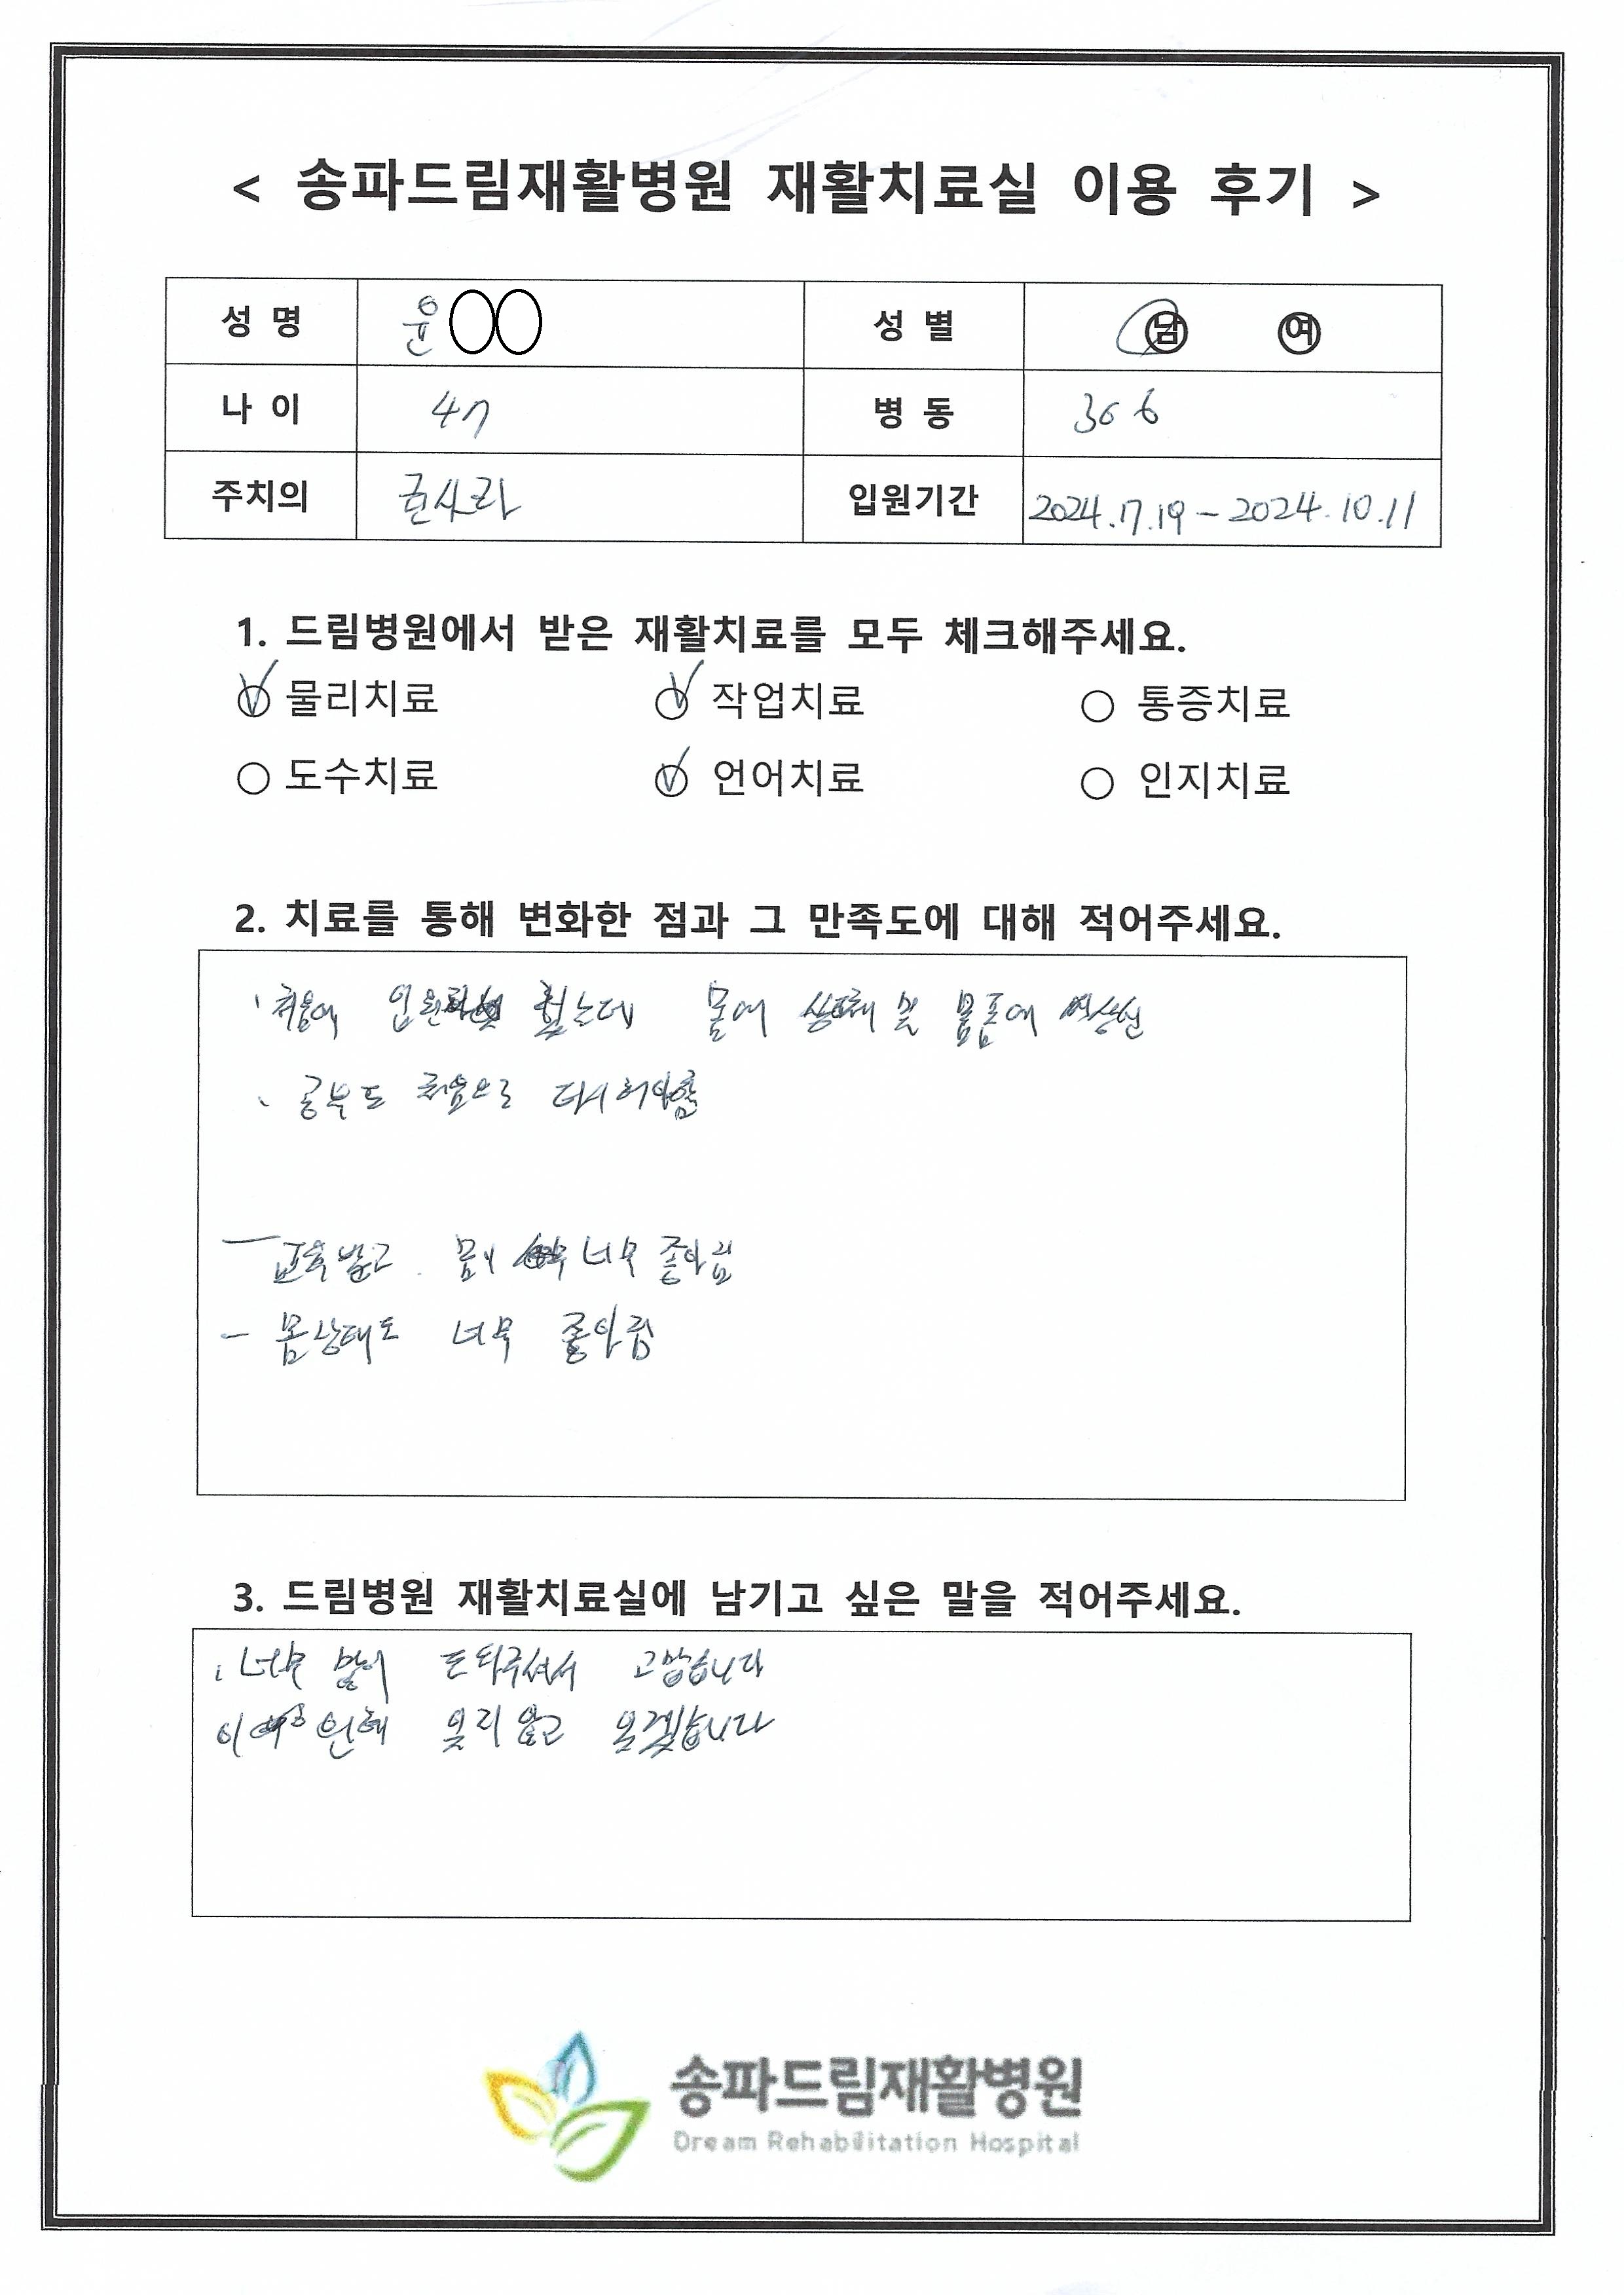 < 송파드림재활병원 재활치료실 이용 후기 >
성 명 윤○○ 성 별 남 여
나 이 47 병 동 306
주치의 입원기간 2024.7.19 - 2024.10.11
1. 드림병원에서 받은 재활치료를 모두 체크해주세요.
물리치료 작업치료 통증치료
도수치료 언어치료 인지치료
2. 치료를 통해 변화한 점과 그 만족도에 대해 적어주세요.
처음에 입원 했는데 몸에 상태 및
공부도 처음으로 다시
- 교육받고. 몸이 너무 좋아짐
- 몸상태도 너무 좋아짐
3. 드림병원 재활치료실에 남기고 싶은 말을 적어주세요.
너무 많이 도와주셔서 고맙습니다
잊지 않고
송파드림재활병원
Dream Rehabilitation Hospital